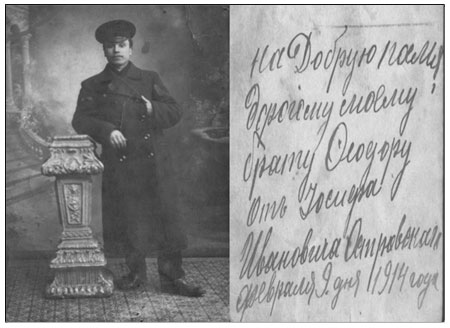 на Добрую памя
дорогому моему
брату Ѳеодору
отъ Іосифа
Ивановича Островскаго
февраля 9 дня 1914 года